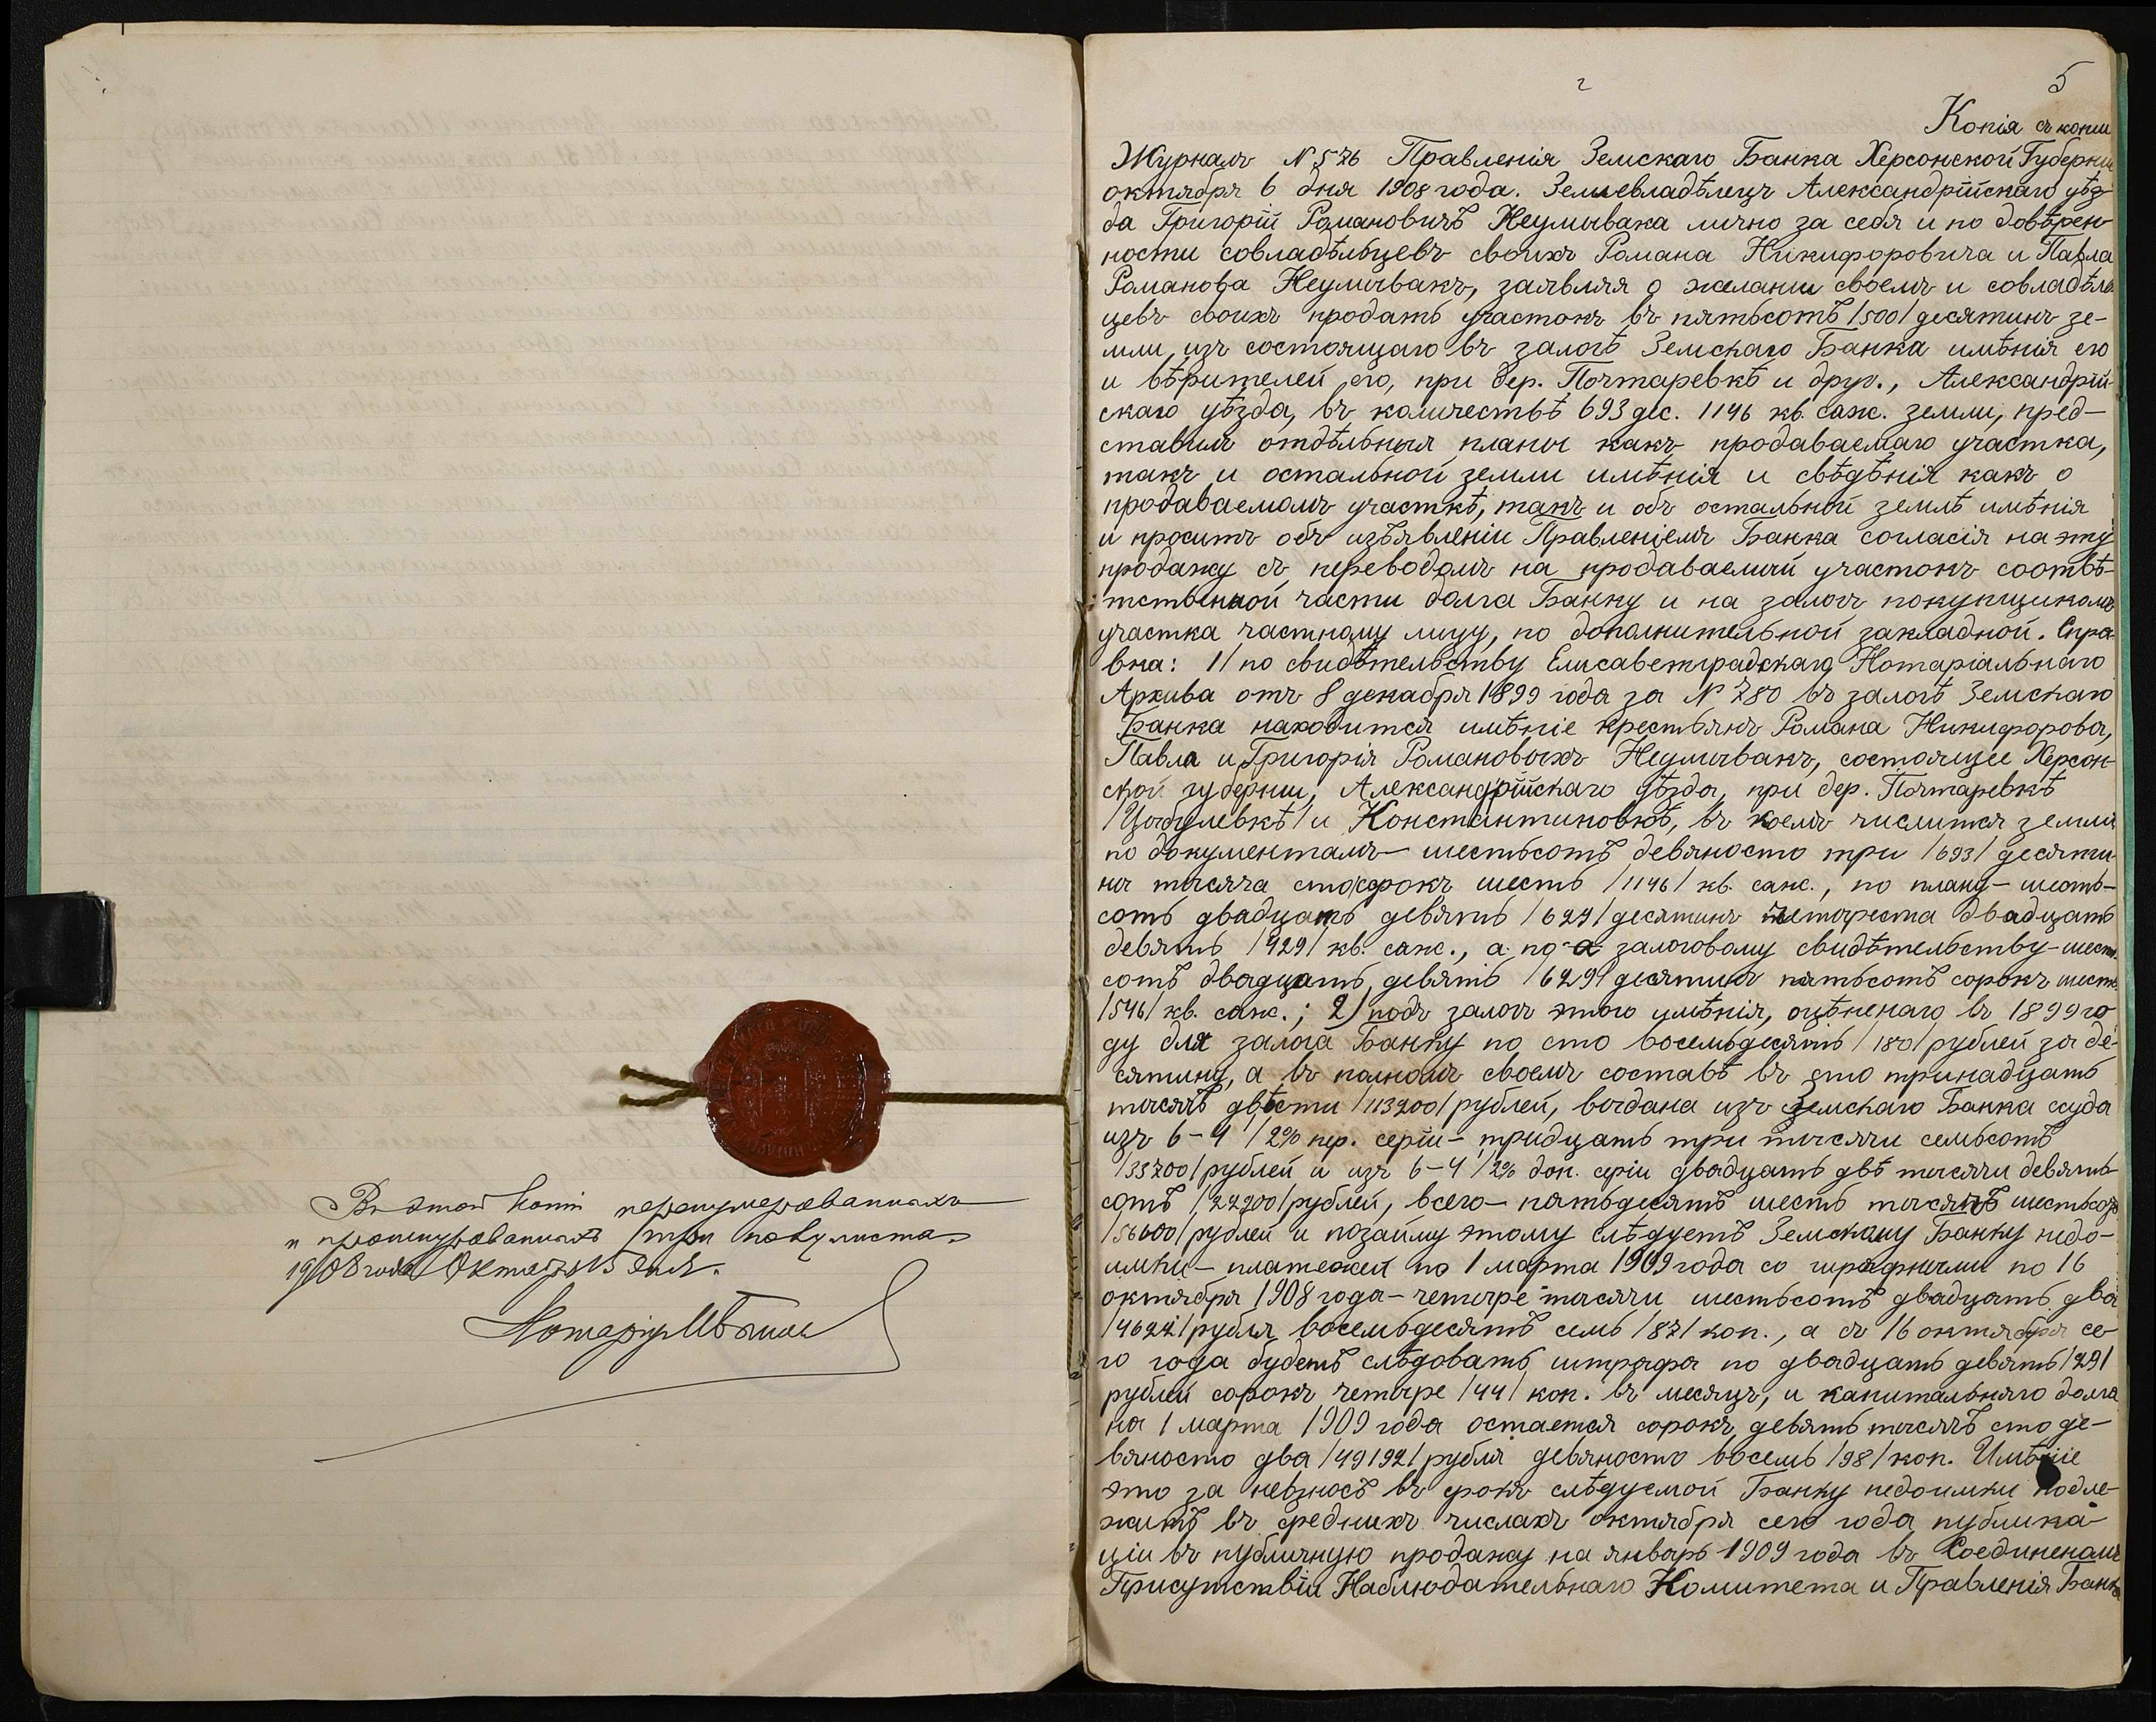 Въ этой копіи перенумерованныхъ
и прошнурованныхъ три полулиста.
1908 года Октября 15 дня.
Нотаріусъ
5
Копія съ копіи
Журналъ № 576 Правленія Земскаго Банка Херсонской Губерніи
октября 6 дня 1908 года. Землевладѣлецъ Александрійскаго уѣз-
да Григорій Романовичъ Неумывака лично за себя и по довѣрен-
ности совладѣльцевъ своихъ Романа Никифоровича и Павла
Романова Неумывакъ, заявляя о желаніи своемъ и совладѣль-
цевъ своихъ продать участокъ въ пятьсотъ /500/ десятинъ зе-
мли, изъ состоящаго въ залогѣ Земскаго Банка имѣнія его
и вѣрителей его, при дер. Почтаревкѣ и друг., Александрій-
скаго уѣзда, въ количествѣ 693 дес. 1146 кв. саж. земли, пред-
ставилъ отдѣльныя планы какъ продаваемаго участка,
такъ и остальной земли имѣнія и свѣдѣнія какъ о
продаваемомъ участкѣ, такъ и объ остальной землѣ имѣнія
и проситъ объ изъявленіи Правленіемъ Банка согласія на эту
продажу съ переводомъ на продаваемый участокъ соотвѣ-
тственной части долга Банку и на залогъ покупщикомъ
участка частному лицу, по дополнительной закладной. Спра-
вка: 1/ по свидѣтельству Елисаветградскаго Нотаріальнаго
Архива отъ 8 декабря 1899 года за № 780 въ залогѣ Земскаго
Банка находится имѣніе крестьянъ Романа Никифорова,
Павла и Григорія Романовыхъ Неумывакъ, состоящее Херсон-
ской губерніи, Александрійскаго уѣзда, при дер. Почтаревкѣ
/Цыбулевкѣ/ и Константиновкѣ, въ коемъ числится земли
по документамъ – шестьсотъ девяносто три /693/ десяти-
ны тысяча сто сорокъ шесть /1146/ кв. саж., по плану – шесть-
сотъ двадцать девять /629/ десятинъ четыреста двадцать
девять /429/ кв. саж., а по залоговому свидѣтельству – шесть-
сотъ двадцать девять /629/ десятинъ пятьсотъ сорокъ шесть
/546/ кв. саж.; 2/ подъ залогъ этого имѣнія, оцѣненаго въ 1899 го-
ду для залога Банку по сто восемьдесятъ /180/ рублей за де-
сятину, а въ полномъ своемъ составѣ въ сто тринадцать
тысячъ двѣсти /113200/ рублей, выдана изъ Земскаго Банка ссуда
изъ 6-4 1/2% пер. серіи – тридцать три тысячи семьсотъ
/33700/ рублей и изъ 6-4 1/2% доп. серіи двадцать двѣ тысячи девять-
сотъ /22900/ рублей, всего – пятьдесятъ шесть тысячъ шестьсотъ
/56600/ рублей и по займу этому слѣдуетъ Земскому Банку недо-
имки – платежей по 1 марта 1909 года со штрафными по 16
октября 1908 года – четыре тысячи шестьсотъ двадцать два
/4622/ рубля восемьдесятъ семь /87/ коп., а съ 16 октября се-
го года будетъ слѣдовать штрафа по двадцать девять /29/
рублей сорокъ четыре /44/ коп. въ месяцъ, и капитальнаго долга
на 1 марта 1909 года остается сорокъ девять тысячъ сто де-
вяносто два /49192/ рубля девяносто восемь /98/ коп. Имѣніе
это за невзносъ въ срокъ слѣдуемой Банку недоимки подле-
житъ въ среднихъ числахъ октября сего года публика-
ціи въ публичную продажу на январь 1909 года въ Соединеномъ
Присутствіи Наблюдательнаго Комитета и Правленія Банка